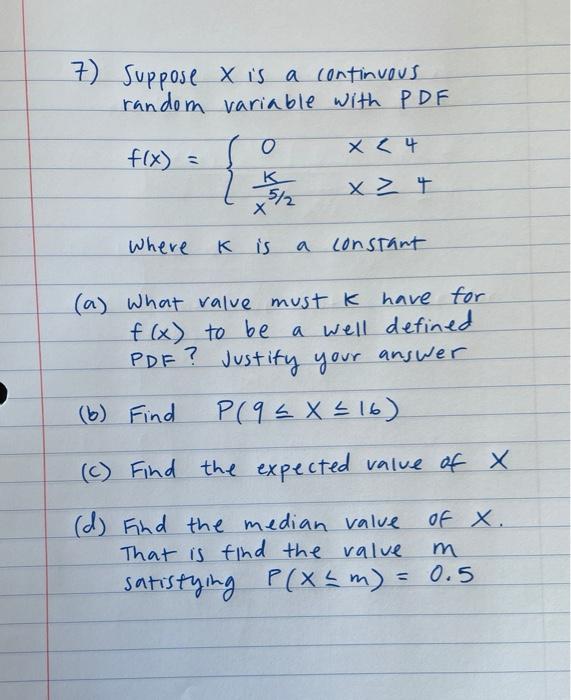 7) Suppose X is a continuous
random variable with PDF
f(x) = { 0 x < 4
K/x^5/2 x ≥ 4
where K is a constant
(a) What value must K have for
f(x) to be a well defined
PDF? Justify your answer
(b) Find P(9 ≤ X ≤ 16)
(c) Find the expected value of X
(d) Find the median value of X.
That is find the value m
satisfying P(X ≤ m) = 0.5